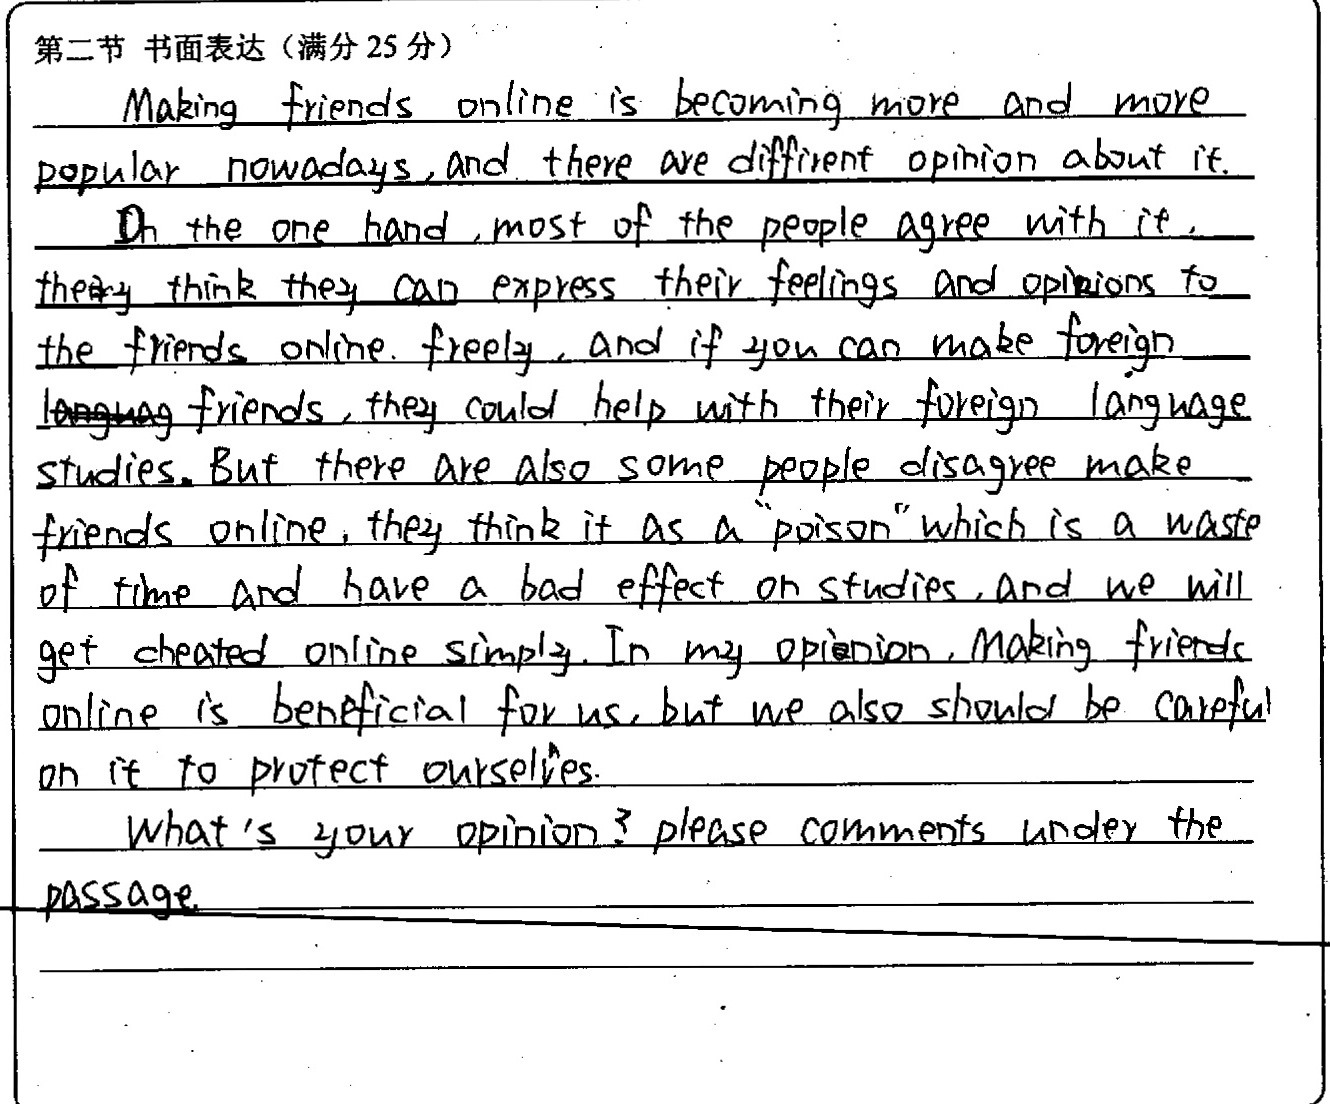 第二节 书面表达（满分 25 分）
Making friends online is becoming more and more
popular nowadays, and there are diffirent opinion about it.
On the one hand, most of the people agree with it,
they think they can express their feelings and opinions to
the friends online. freely, and if you can make foreign
friends, they could help with their foreign language
studies. But there are also some people disagree make
friends online, they think it as a "poison" which is a waste
of time and have a bad effect on studies, and we will
get cheated online simply. In my opinion, Making friends
online is beneficial for us, but we also should be careful
on it to protect ourselves.
What's your opinion? please comments under the
passage.